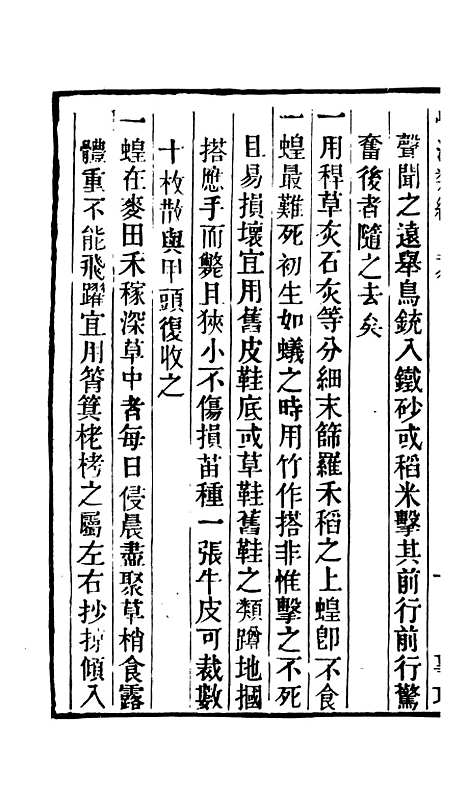 聲聞之遠舉鳥銃入鐵砂或稻米擊其前行前行驚
奮後者隨之去矣
一用稈草灰石灰等分細末篩羅禾稻之上蝗卽不食
一蝗最難死初生如蟻之時用竹作搭非惟擊之不死
且易損壞宜用舊皮鞋底或草鞋舊鞋之類蹲地摑
搭應手而斃且狹小不傷損苗種一張牛皮可裁數
十枚散與甲頭復收之
一蝗在麥田禾稼深草中者每日侵晨盡聚草梢食露
體重不能飛躍宜用筲箕栳栲之屬左右抄掠傾入